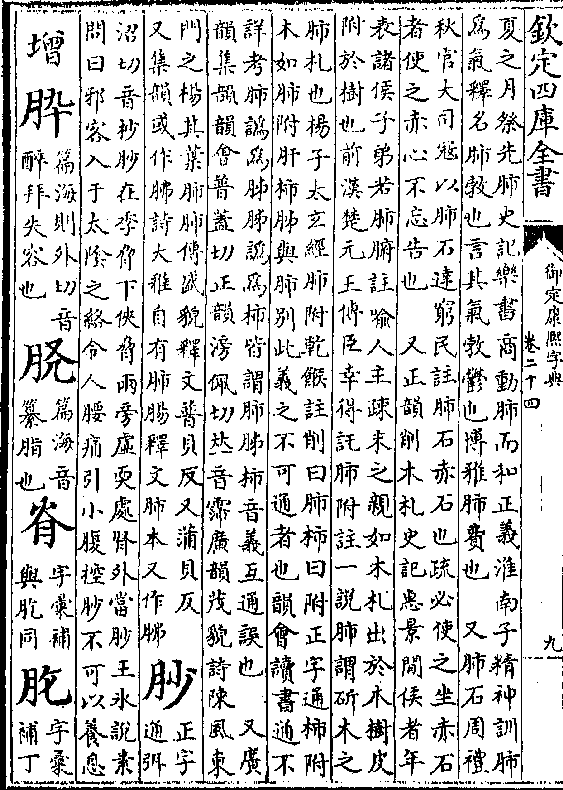 欽定四庫全書
御定康熙字典
卷二十四
九
夏之月祭先肺史記樂書商動肺而和正義淮南子精神訓肺
為氣釋名肺勃也言其氣勃鬱也博雅肺費也 又肺石周禮
秋官大司寇以肺石達窮民註肺石赤石也疏必使之坐赤石
者使之赤心不忘告也 又正韻削木札史記惠景間侯者年
表諸侯子弟若肺腑註喻人主疎末之親如木札出於木樹皮
附於樹也前漢楚元王傳臣幸得託肺附註一說肺謂斫木之
肺札也楊子太玄經肺附乾餱註削曰肺柿曰附正字通柿附
木如肺附肝柿肺與肺別此義之不可通者也韻會讀書通不
詳考肺譌為胏胏譌為柿皆謂肺胏柿音義互通誤也 又廣
韻集韻韻會普蓋切正韻滂佩切𠀤音霈廣韻茂貌詩陳風東
門之楊其葉肺肺傳盛貌釋文普貝反又蒲貝反
又集韻或作胇詩大雅自有肺腸釋文肺本又作胇
𦙧
正字
通弭
沼切音杪𦙧在季脅下俠脊兩旁虛耎處腎外當𦙧王氷說素
問曰邪客入于太陰之絡令人腰痛引小腹控𦙧不可以養息
增
䏞
篇海則外切音
醉拜失容也
脕
篇海音
纂脂也
肻
字彙補
與肐同
肐
字彙
補丁